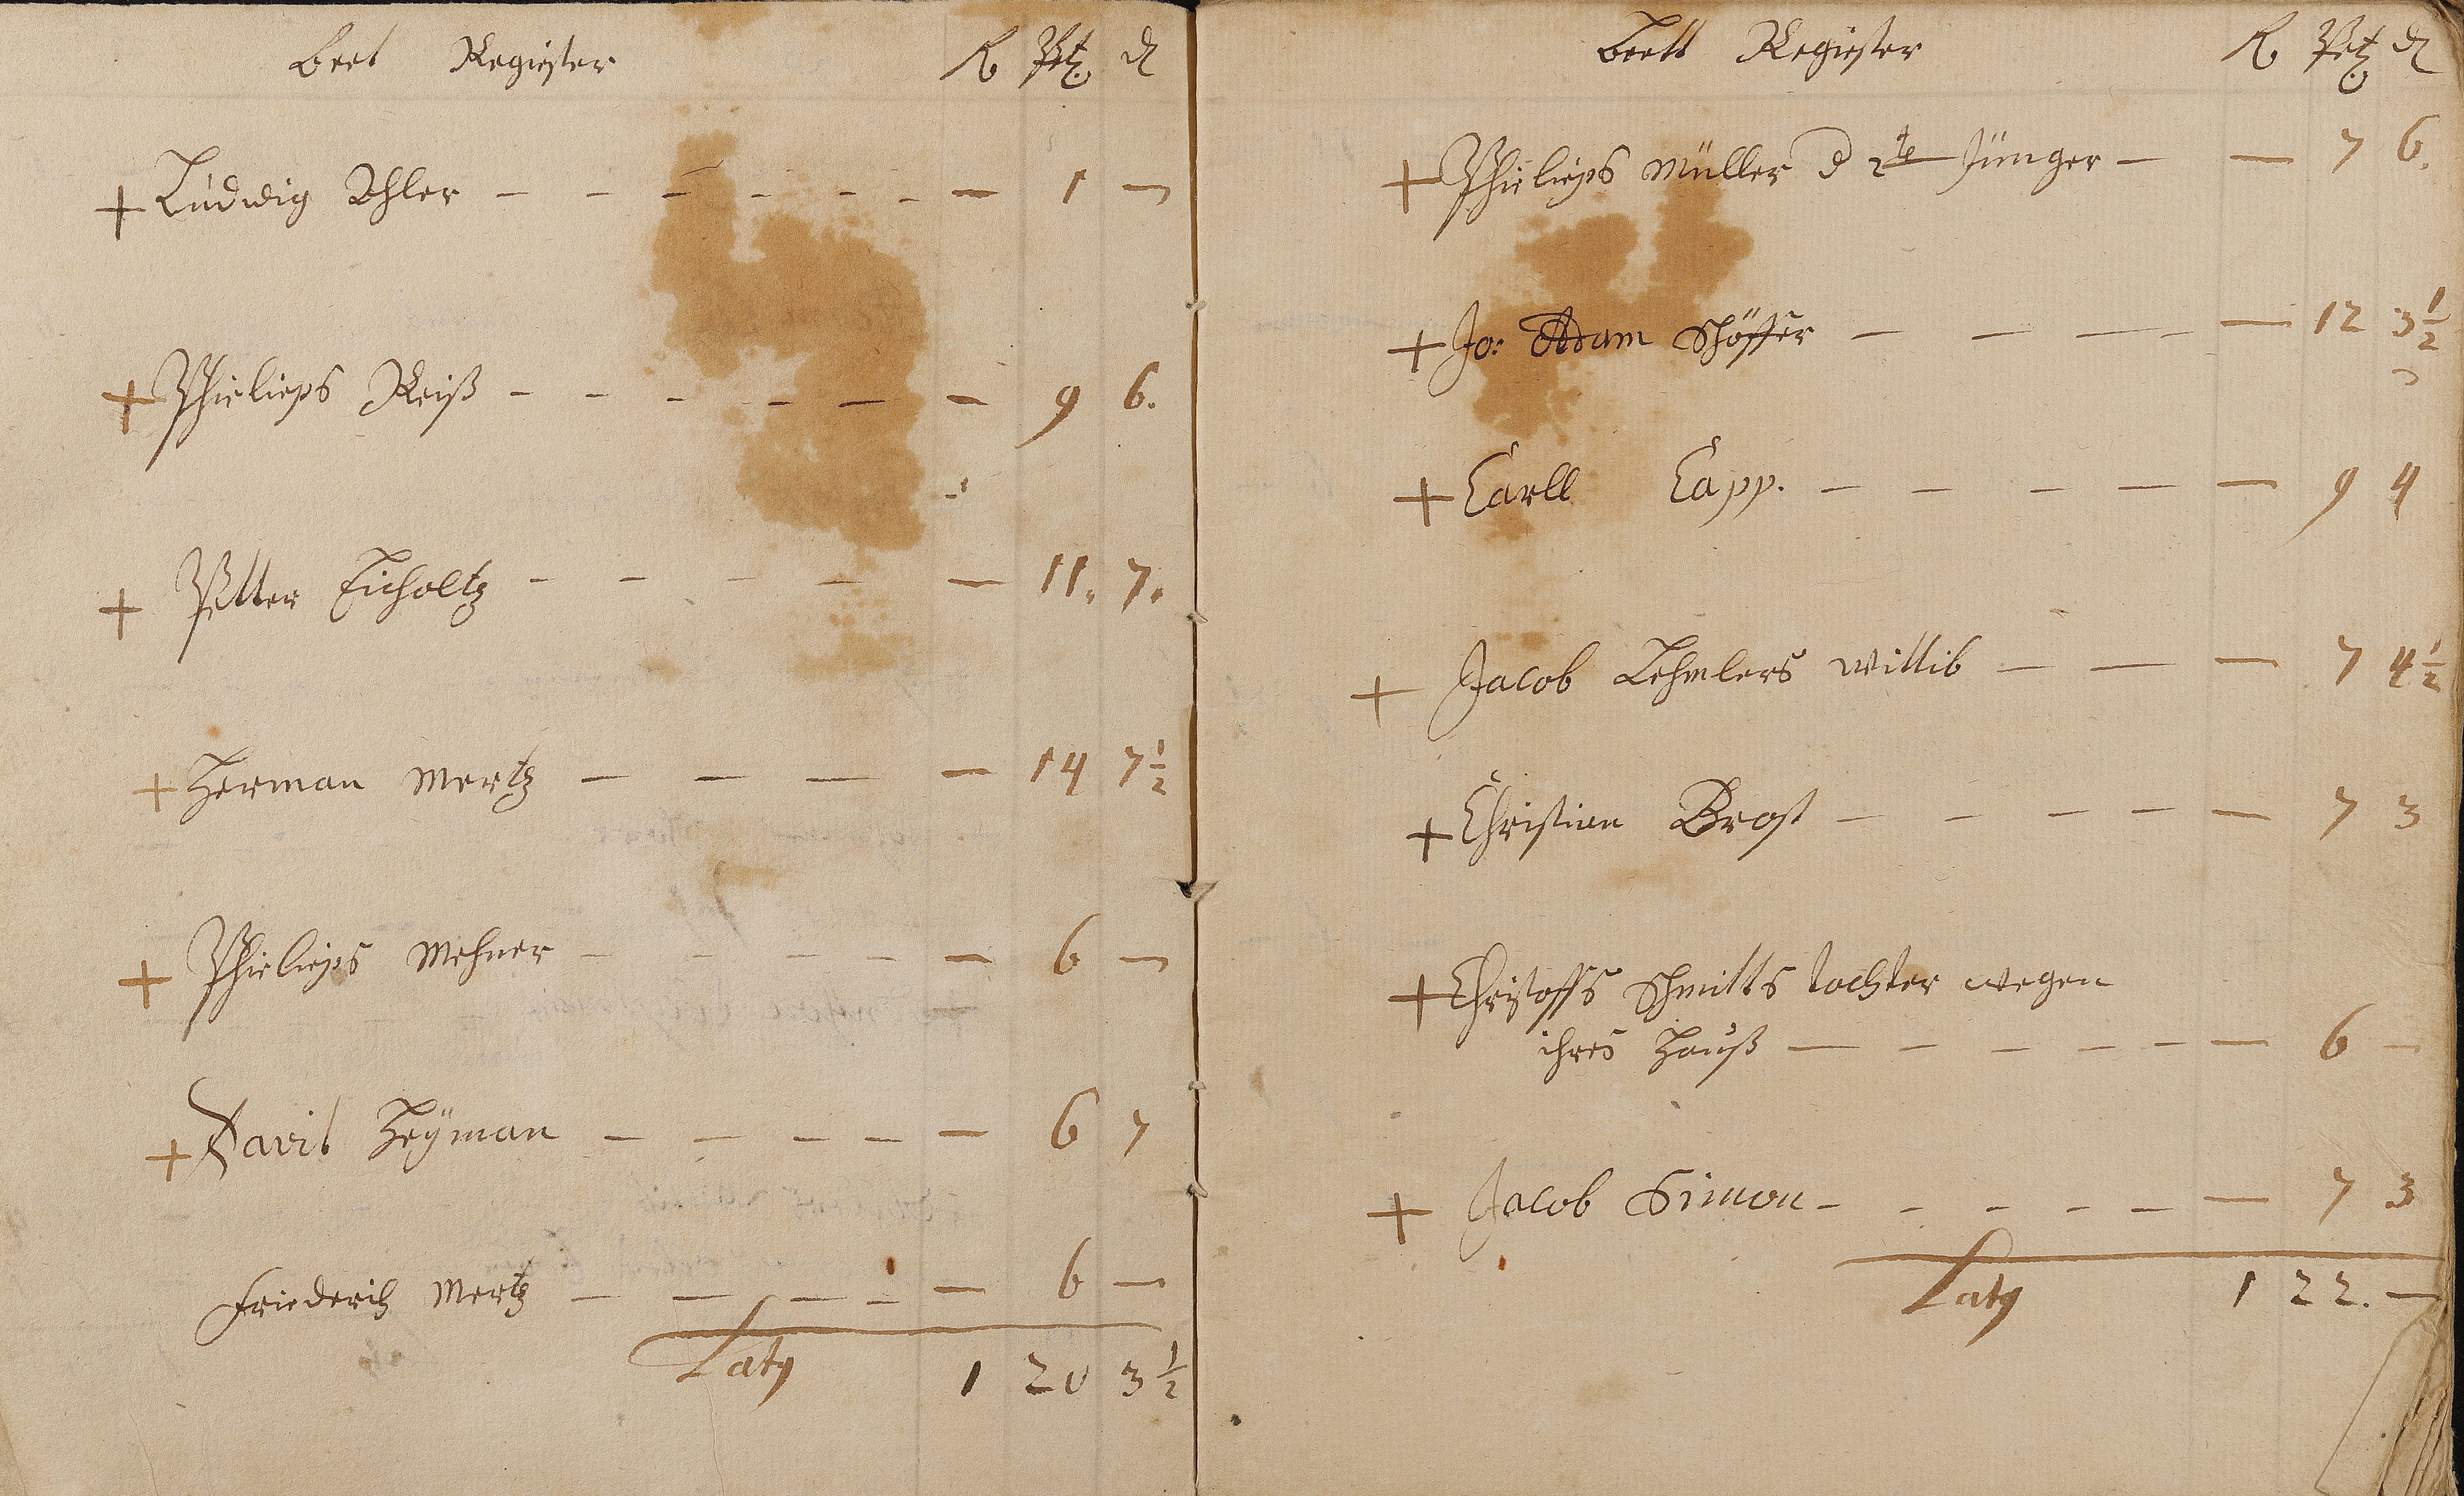 Beet Register R Ptz d
+ Ludwig Ohler — — — — — — — 1 —
+ Phieliepß Reiß — — — — — — 9 6.
+ Petter Eicholtz — — — — — 11. 7.
+ Herman Mertz — — — — 14 7½
+ Phieliepß Mehner — — — — — 6 —
+ Davit Heÿman — — — — — 6 7
Friederich Mertz — — — — — 6 —
Latg 1 20 3½
Beett Register R Ptz d
+ Phieliepß Müller d 2te Jünger — — 7 6.
+ Jo: Adam Schöffer — — — — — 12 3½
+ Carll Capp. — — — — — 9 4
+ Jacob Lehmlers wittib — — — 7 4½
+ Christian Brost — — — — — 7 3
+ Christoffs Schmitts tochter wegen
ihres Hauß — — — — — — 6 —
+ Jacob Simon — — — — — — 7 3
Latg 1 22. —